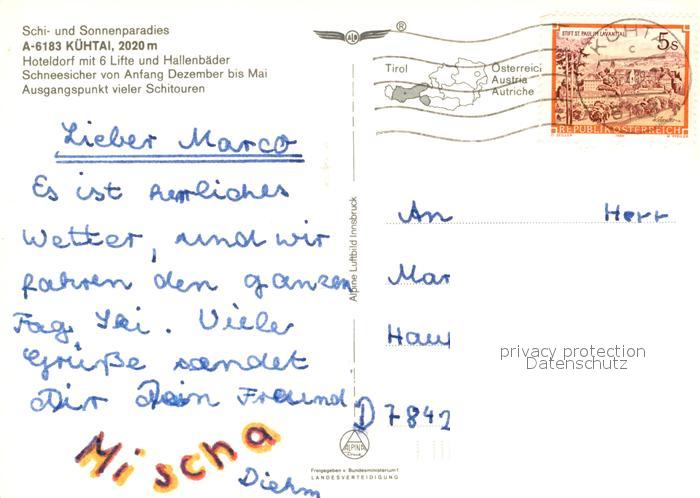 Schi- und Sonnenparadies
A-6183 KÜHTAI, 2020 m
Hoteldorf mit 6 Lifte und Hallenbäder
Schneesicher von Anfang Dezember bis Mai
Ausgangspunkt vieler Schitouren
Lieber Marco
Es ist herrliches
Wetter, und wir
fahren den ganzen
Tag Ski. Viele
Grüße sendet
Dir Dein Freund
Mischa
Diehm
Alpine Luftbild Innsbruck
ALPINA
Freigegeben v. Bundesministerium f.
LANDESVERTEIDIGUNG
®
Tirol
Österreich
Austria
Autriche
STIFT ST. PAUL IM LAVANTTAL
5 s
REPUBLIK ÖSTERREICH
An Herr
Mar
Hau
D 7842
privacy protection
Datenschutz